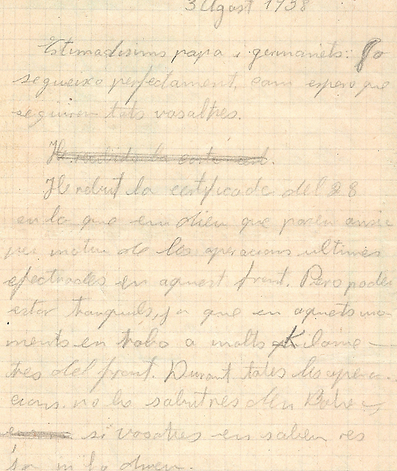 3 Agost 1938
Estimadisims papa i germanets: Jo
segueixo perfectament, com espero que
seguireu tots vosaltres.
He recibido la carta
He rebut la certificada del 28
en la que em dieu que passeu ansia
per motiu de les operacions ultimes
efectuades en aquest front. Pero podeu
estar tranquils, ja que en aquets mo-
ments em trobo a molts Kilome-
tres del front. Durant totes les opera-
cions no he sabut res den
si vosatres en sabeu res
ja m'ho direu.